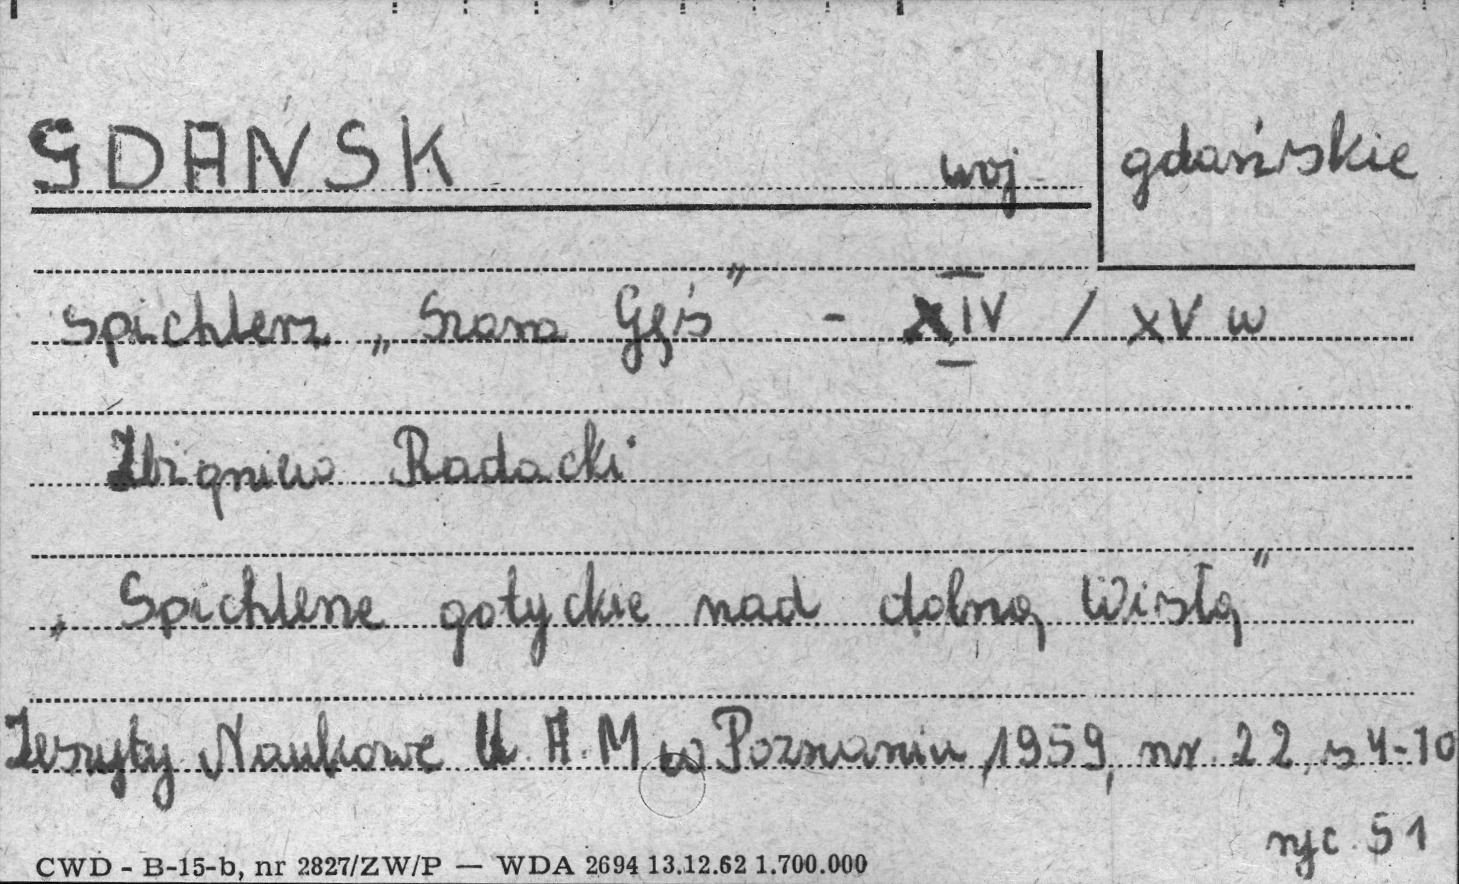 GDANSK woj gdańskie
spichlerz „Szara Gęś" - XIV / XV w
Zbigniew Radacki
„Spichlerze gotyckie nad dolną Wisłą"
Zeszyty Naukowe U.A.M w Poznaniu, 1959, nr. 22, s 4-10
ryc. 51
CWD - B-15-b, nr 2827/ZW/P — WDA 2694 13.12.62 1.700.000